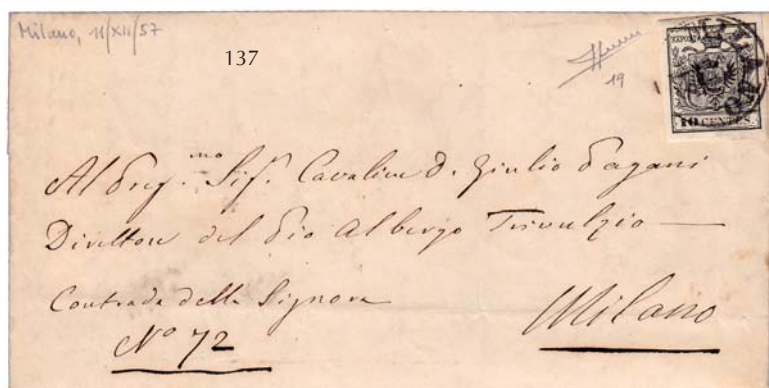 Milano, 11/XII/57
137
19
KKPOSTSTEMPEL
MILANO
10 CENTES.
Al Preg.mo Sig.r Cavaliere D. Giulio Pagani
Direttore del Pio Albergo Trivulzio
Contrada della Signora
No 72
Milano